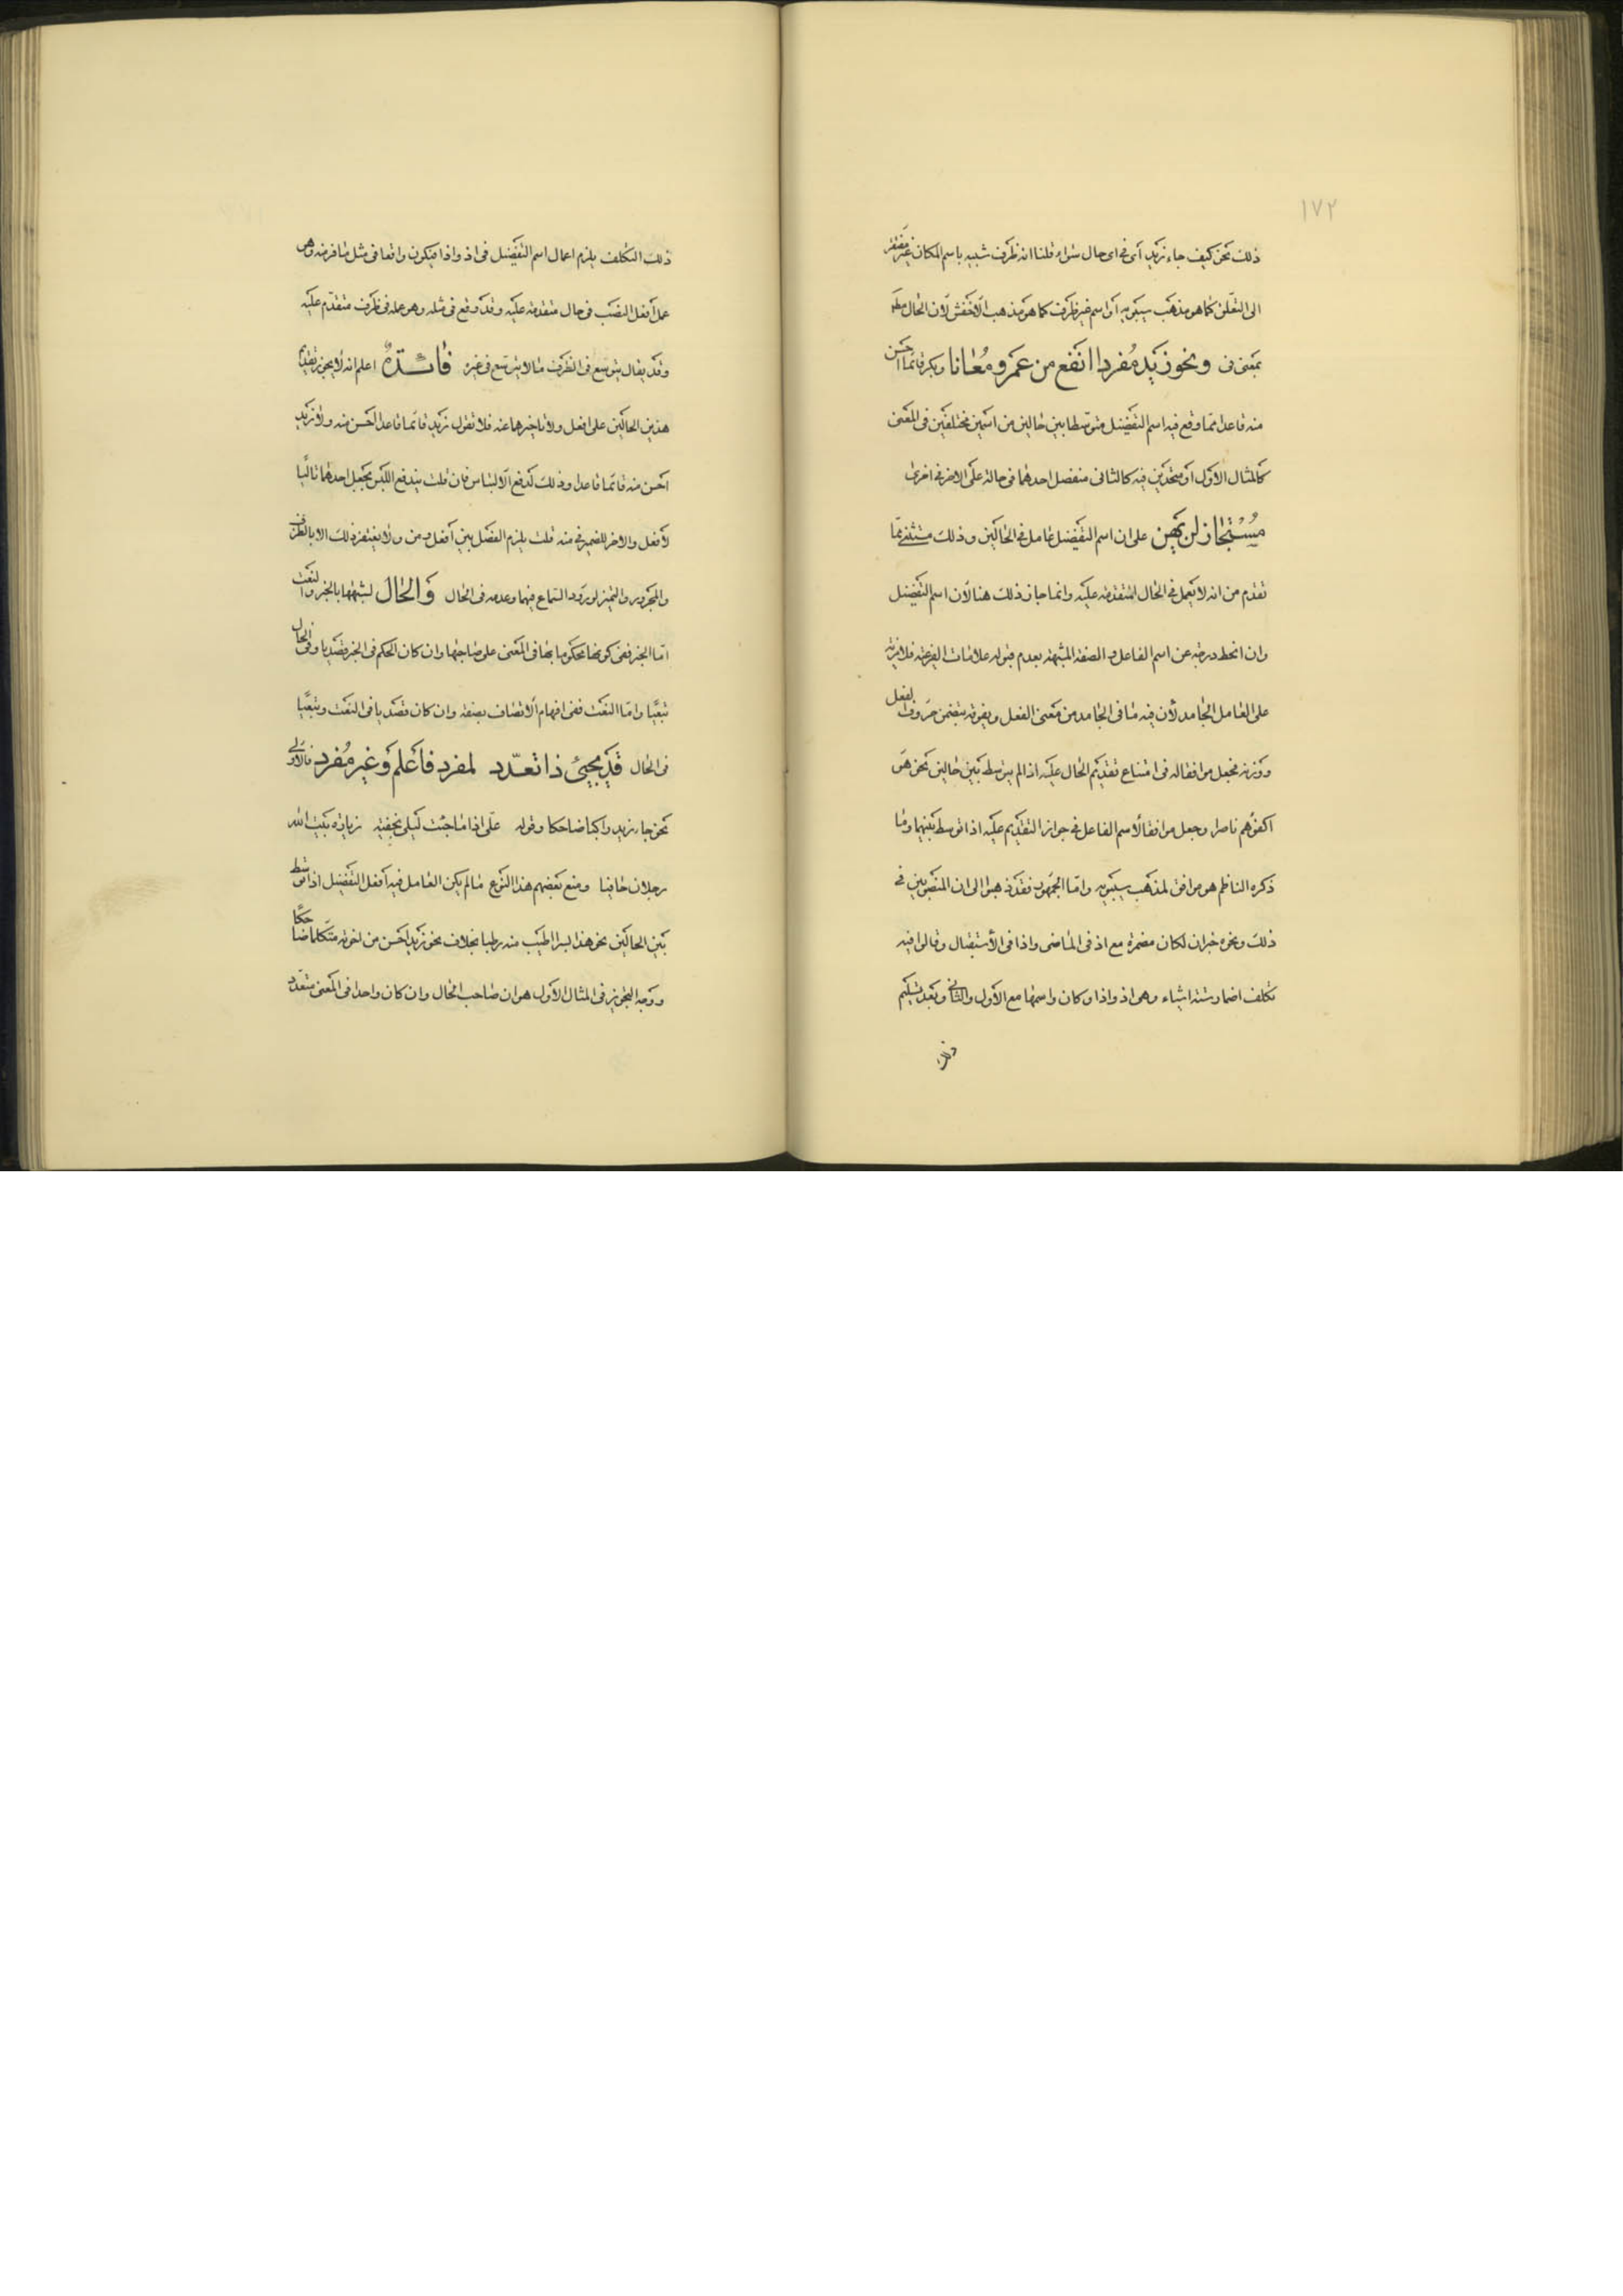 ١٧٢
ذلك نحو كيف جاء زيد أى في اى حال سواء قلنا انه ظرف شبيه باسم المكان غير مفتقر
الى التعلق كما هو مذهب سيبويه أو اسم غير ظرف كما هو مذهب الأخفش لأن الحال مطلقا
بمعنى فى ونحو زيد مفردا انفع من عمرو معانا وبكر قائما أحسن
منه قاعدا مما وقع فيه اسم التفضيل متوسطا بين حالين من اسمين مختلفين فى المعنى
كالمثال الاول أو متحدين فيه كالثانى مفضل احدهما فى حالة على الاخر في اخرى
مستجاز لن يهن على ان اسم التفضيل عامل في الحالين وذلك مستثنى مما
تقدم من انه لا يعمل في الحال المتقدمة عليه وانما جاز ذلك هنا لأن اسم التفضيل
وان انحط درجة عن اسم الفاعل والصفة المشبهة بعدم قبوله علامات الفرعية فله مزية
على العامل الجامد لأن فيه ما فى الجامد من معنى الفعل ويفوقه بتضمن حروف الفعل
ووزنه فجعل موافقا له فى امتناع تقديم الحال عليه اذا لم يتوسط بين حالين نحو هو
اكفؤهم ناصرا وجعل موافقا لاسم الفاعل في جواز التقديم عليه اذا توسط بينهما وما
ذكره الناظم هو موافق لمذهب سيبويه واما الجمهور فقد ذهبوا الى ان المنصوبين في
ذلك ونحوه خبران لكان مضمرة مع اذ فى الماضى واذا فى الأستقبال وقالوا فيه
تكلف اضمار ستة اشياء وهى اذ واذا وكان واسمها مع الأول والثاني وبعد تسليم
ذلك
ذلك التكلف يلزم اعمال اسم التفضيل فى اذ واذا فيكون واقعا فى مثل ما فر منه وهو
عمل أفعل النصب فى حال متقدمة عليه وقد وقع فى مثله وهو عمله فى ظرف متقدم عليه
وقد يقال يتوسع فى الظرف ما لا يتوسع فى غيره فائدة اعلم انه لا يجوز تقديم
هذين الحالين على افعل ولا تاخيرهما عنه فلا تقول زيد قائما قاعدا احسن منه ولا زيد
احسن منه قائما قاعدا وذلك لدفع الالتباس فان قلت يندفع اللبس بجعل احدهما تاليا
لأفعل والاخر للضمير في منه قلت يلزم الفصل بين أفعل ومن ولا يغتفر ذلك الا بالظرف
والمجرور والتميز لورود السماع فيهما وعدمه فى الحال والحال لشبهها بالخبر والنعت
اما الخبر ففى كونها محكوما بها فى المعنى على صاحبها وان كان الحكم فى الخبر قصديا وفى الحال
تبعيا واما النعت ففى افهام الاتصاف بصفة وان كان قصديا فى النعت وتبعيا
فى الحال قد يجيئ ذا تعدد لمفرد فاعلم وغير مفرد فالأولى
نحو جاء زيد راكبا ضاحكا وقوله على اذا ما جئت ليلى بخفية زيارة بيت الله
رجلان حافيا ومنع بعضهم هذا النوع ما لم يكن العامل فيه أفعل التفضيل اذا توسط
بين الحالين نحو هذا بسرا اطيب منه رطبا بخلاف نحو زيد احسن من اخوته متكلما ضاحكا
ووجه التجويز فى المثال الاول هو ان صاحب الحال وان كان واحدا فى المعنى متعدد